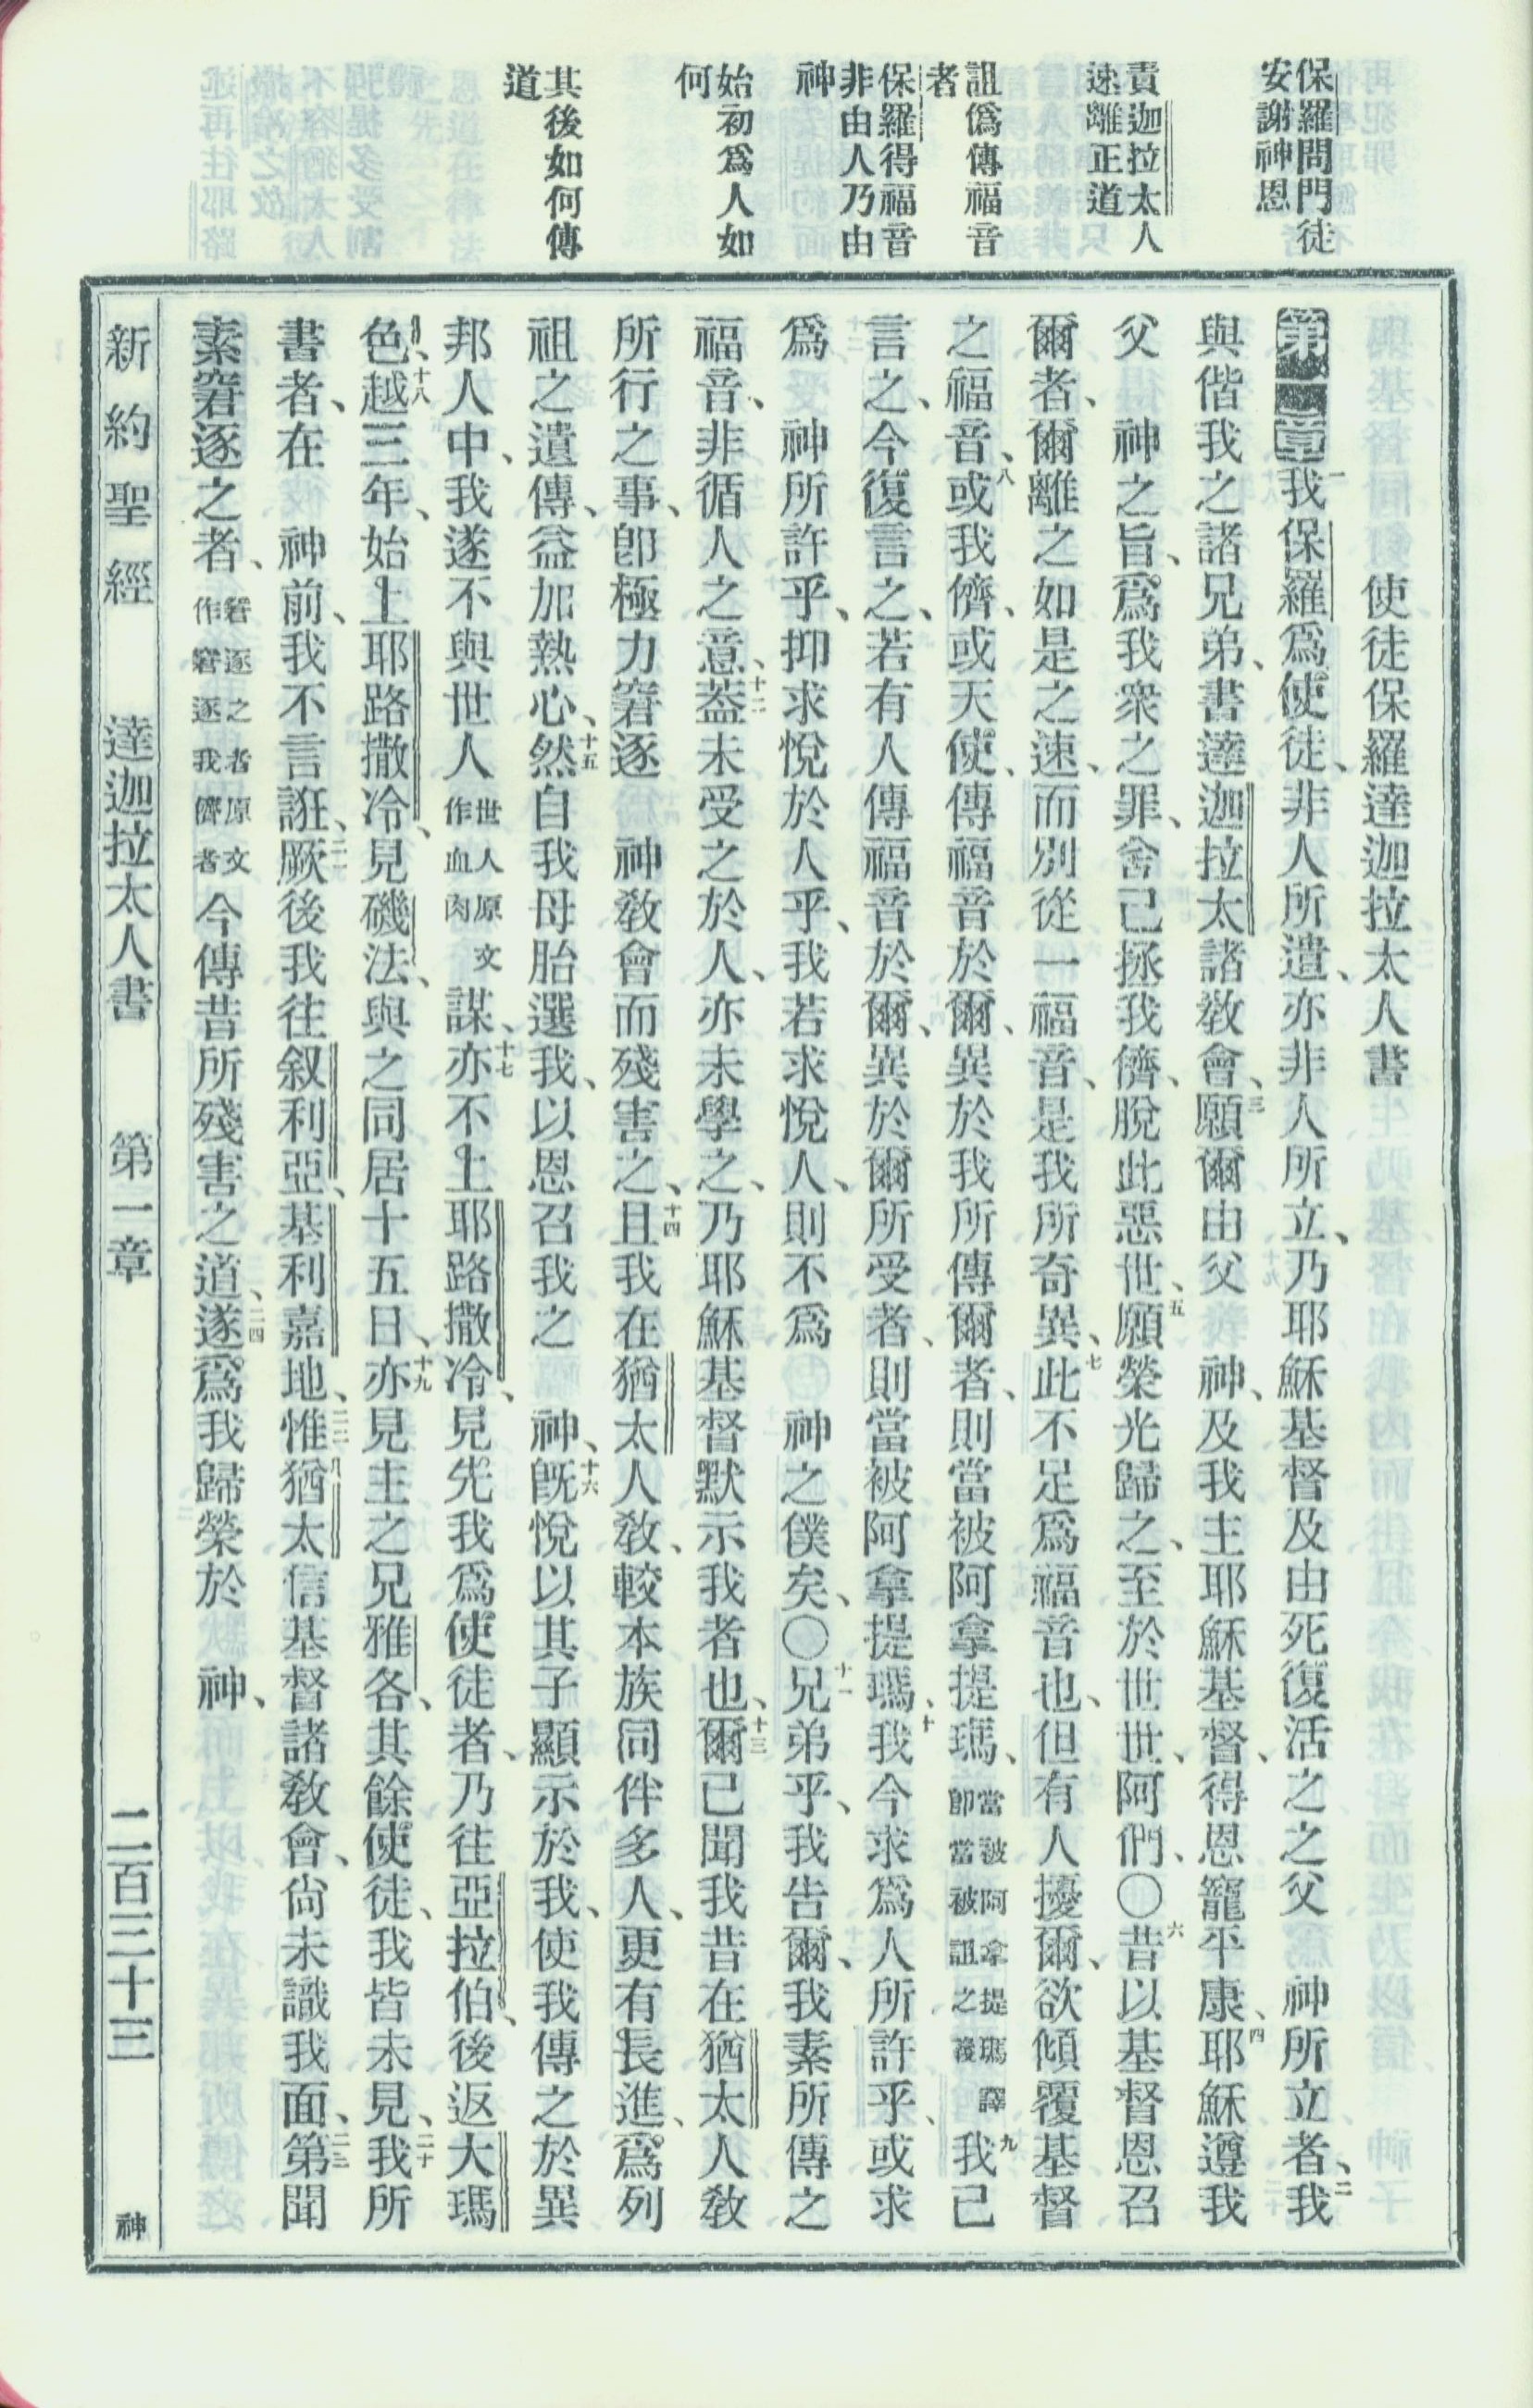 保羅問門徒
安謝神恩
責迦拉太人
速離正道
詛僞傳福音
者
保羅得福音
非由人乃由
神
始初爲人如
何
其後如何傳
道
使徒保羅達迦拉太人書
第一章一我保羅爲使徒、非人所遣、亦非人所立、乃耶穌基督及由死復活之之父 神所立者、二我
與偕我之諸兄弟、書達迦拉太諸教會、三願爾由父 神、及我主耶穌基督、得恩寵平康、四耶穌遵我
父 神之旨、爲我衆之罪、舍己拯我儕、脫此惡世、五願榮光歸之、至於世世、阿們、〇六昔以基督恩召
爾者、爾離之如是之速、而別從一福音、是我所奇異、七此不足爲福音也、但有人擾爾、欲傾覆基督
之福音、八或我儕、或天使、傳福音於爾、異於我所傳爾者、則當被阿拿提瑪、當被阿拿提瑪譯卽當被詛之義九我已
言之、今復言之、若有人傳福音於爾、異於爾所受者、則當被阿拿提瑪、十我今求爲人所許乎、或求
爲 神所許乎、抑求悅於人乎、我若求悅人、則不爲 神之僕矣、〇十一兄弟乎、我告爾、我素所傳之
福音、非循人之意、十二蓋未受之於人、亦未學之、乃耶穌基督默示我者也、十三爾已聞我昔在猶太人教
所行之事、卽極力窘逐 神教會而殘害之、十四且我在猶太人教、較本族同伴多人、更有長進、爲列
祖之遺傳、益加熱心、十五然自我母胎選我、以恩召我之 神、十六旣悅以其子顯示於我、使我傳之於異
邦人中、我遂不與世人世人原文作血肉謀、十七亦不上耶路撒冷、見先我爲使徒者、乃往亞拉伯、後返大瑪
色、十八越三年、始上耶路撒冷、見磯法、與之同居十五日、十九亦見主之兄雅各、其餘使徒、我皆未見、二十我所
書者、在 神前、我不言誑、二一厥後我往叙利亞、基利嘉地、二二惟猶太信基督諸教會、尙未識我面、二三第聞
素窘逐之者、窘逐之者原文作窘逐我儕者今傳昔所殘害之道、二四遂爲我歸榮於 神、
新約聖經 達迦拉太人書 第一章 二百三十三 神